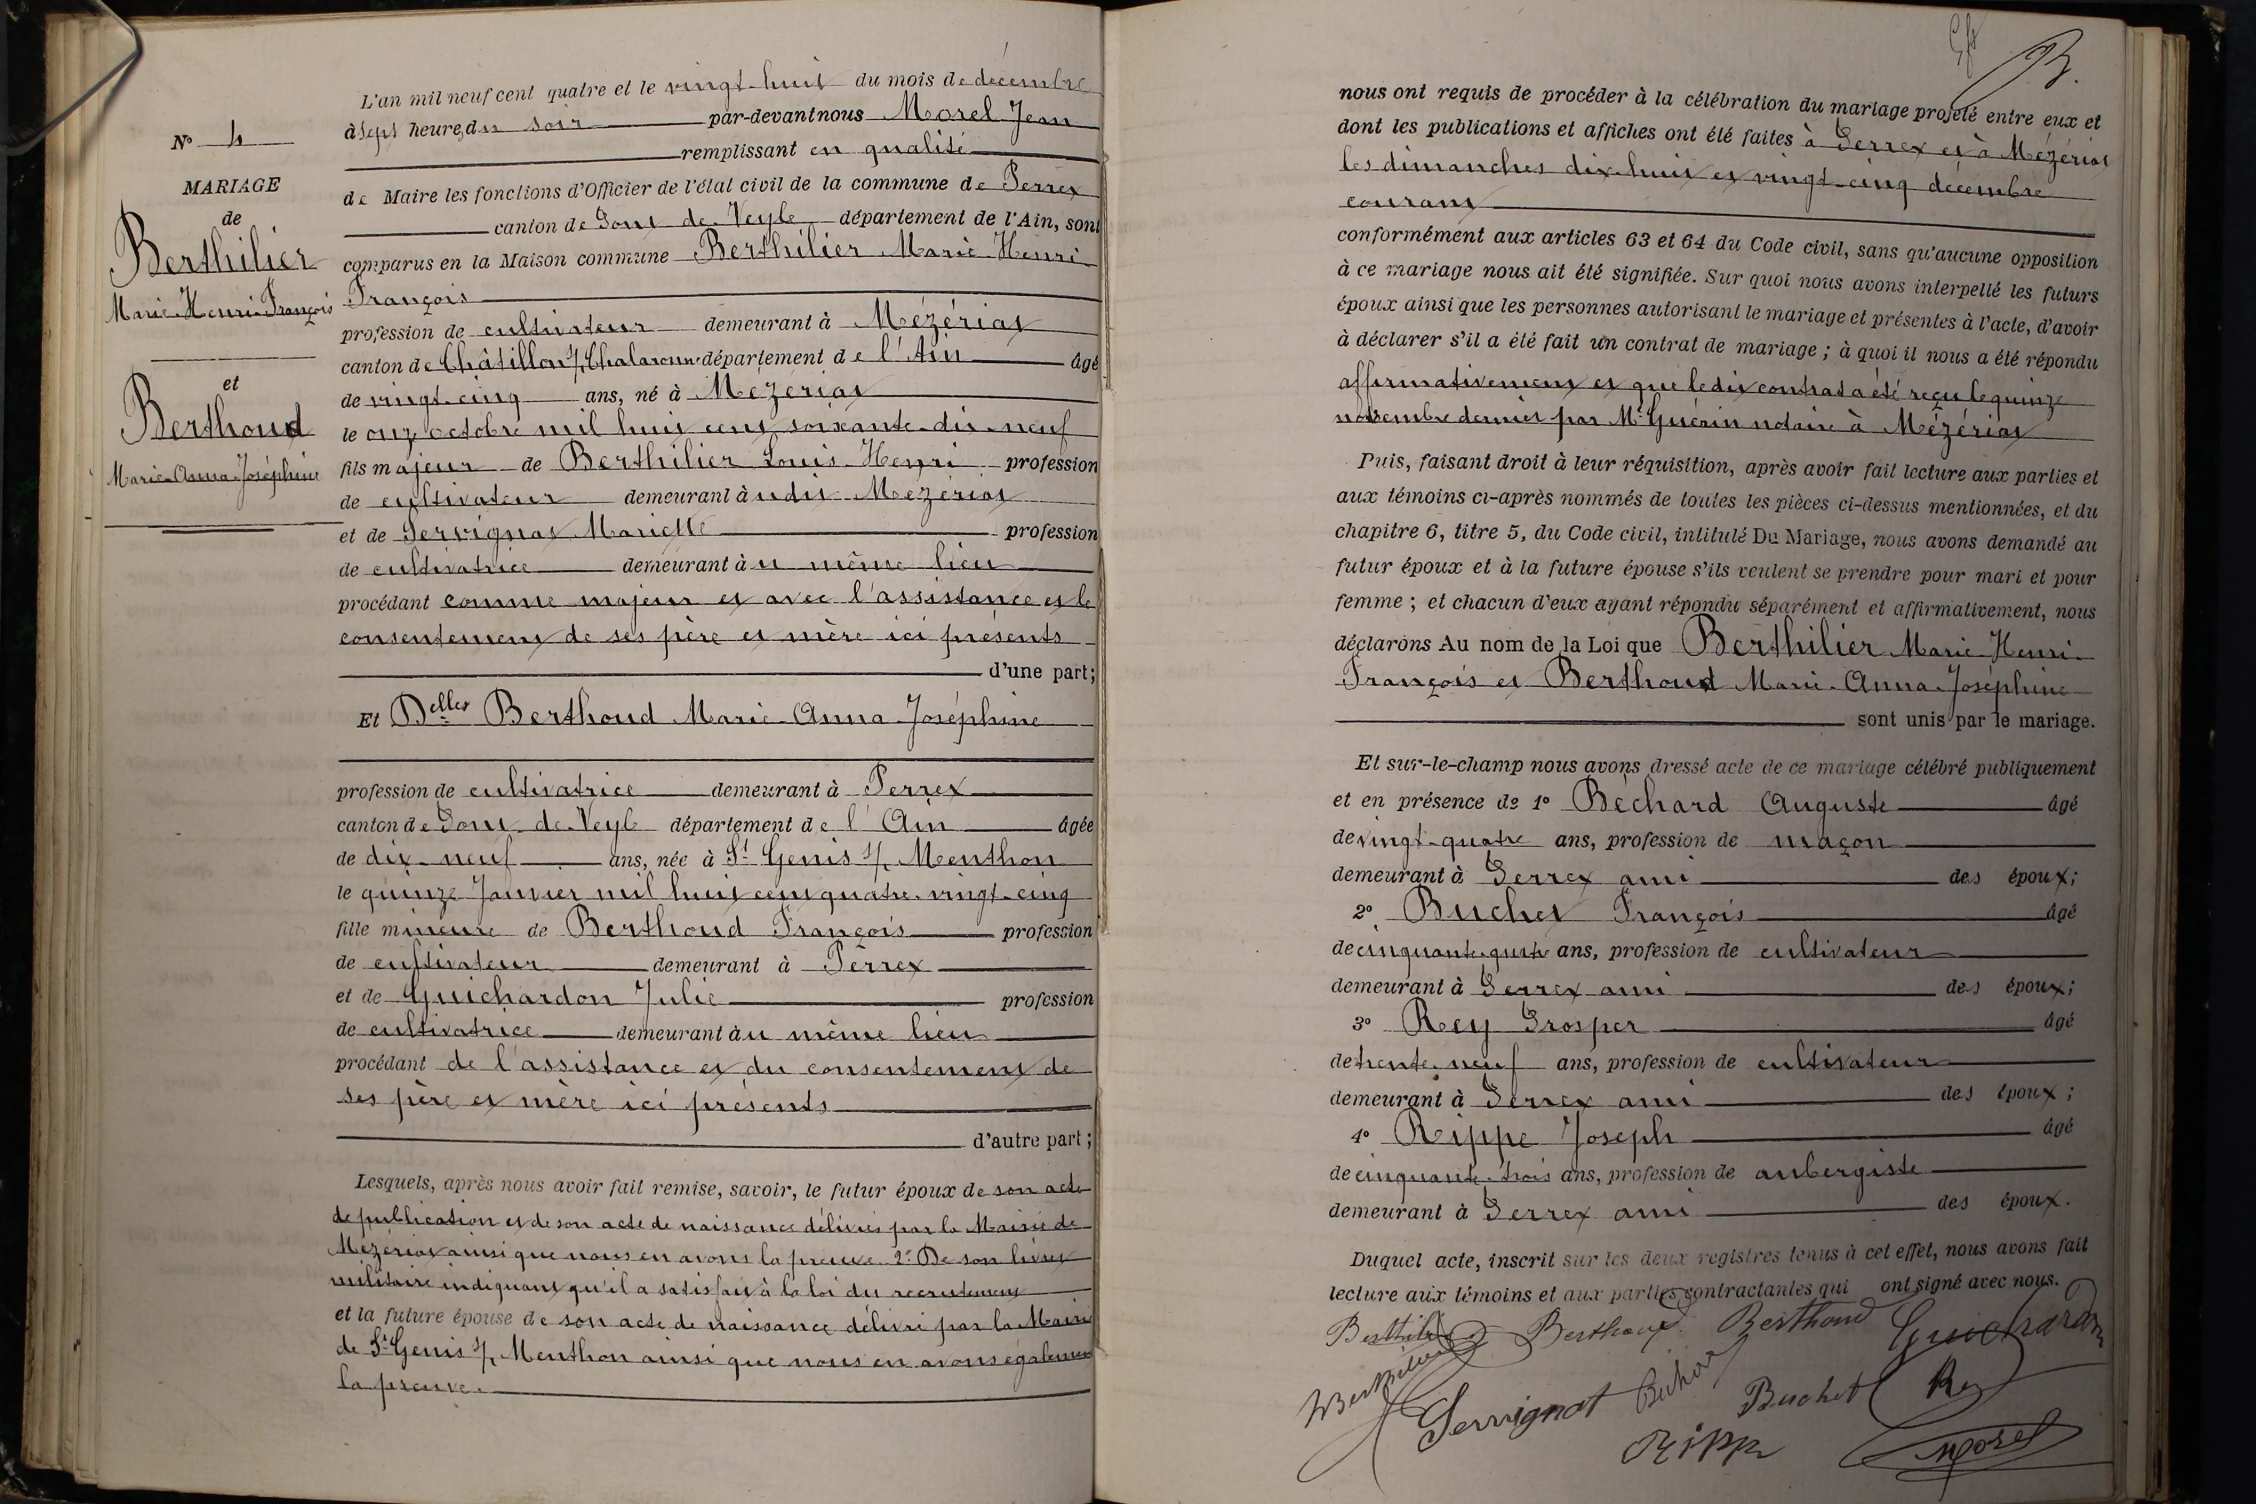 N° 4
MARIAGE
de
Berthilier
Marie-Henri-François
et
Berthoud
Marie-Anna-Joséphine
L'an mil neuf cent quatre et le vingt-huit du mois de décembre
à sept heures, du soir par-devant nous Morel Jean
remplissant en qualité
de Maire les fonctions d'Officier de l'état civil de la commune de Perrex
canton de Pont de Veyle département de l'Ain, sont
comparus en la Maison commune Berthilier Marie-Henri-
François
profession de cultivateur demeurant à Mézériat
canton de Châtillon s/ Chalaronne département de l'Ain âgé
de vingt-cinq ans, né à Mézériat
le onze octobre mil huit cent soixante-dix-neuf
fils majeur de Berthilier Louis-Henri profession
de cultivateur demeurant à udit Mézériat
et de Servignat Mariette profession
de cultivatrice demeurant àu même lieu
procédant comme majeur et avec l'assistance et le
consentement de ses père et mère ici présents
d'une part;
Et Delles Berthoud Marie-Anna-Joséphine
profession de cultivatrice demeurant à Perrex
canton de Pont-de-Veyle département de l'Ain âgée
de dix-neuf ans, née à St Genis s/ Menthon
le quinze Janvier mil huit cent quatre-vingt-cinq
fille mineure de Berthoud François profession
de cultivateur demeurant à Perrex
et de Guichardon Julie profession
de cultivatrice demeurant àu même lieu
procédant de l'assistance et du consentement de
ses père et mère ici présents
d'autre part;
Lesquels, après nous avoir fait remise, savoir, le futur époux de son acte
de publication et de son acte de naissance délivrés par la Mairie de
Mézériat ainsi que nous en avons la preuve. 2° De son livret
militaire indiquant qu'il a satisfait à la loi du recrutement
et la future épouse de son acte de naissance délivré par la Mairie
de St Genis s/ Menthon ainsi que nous en avons également
la preuve.
nous ont requis de procéder à la célébration du mariage projeté entre eux et
dont les publications et affiches ont été faites à Perrex et à Mézériat
les dimanches dix-huit et vingt-cinq décembre
courant
conformément aux articles 63 et 64 du Code civil, sans qu'aucune opposition
à ce mariage nous ait été signifiée. Sur quoi nous avons interpellé les futurs
époux ainsi que les personnes autorisant le mariage et présentes à l'acte, d'avoir
à déclarer s'il a été fait un contrat de mariage ; à quoi il nous a été répondu
affirmativement et que ledit contrat a été reçu le quinze
novembre dernier par Me Guérin notaire à Mézériat
Puis, faisant droit à leur réquisition, après avoir fait lecture aux parties et
aux témoins ci-après nommés de toutes les pièces ci-dessus mentionnées, et du
chapitre 6, titre 5, du Code civil, intitulé Du Mariage, nous avons demandé au
futur époux et à la future épouse s'ils veulent se prendre pour mari et pour
femme ; et chacun d'eux ayant répondu séparément et affirmativement, nous
déclarons Au nom de la Loi que Berthilier Marie-Henri-
François et Berthoud Marie-Anna-Joséphine
sont unis par le mariage.
Et sur-le-champ nous avons dressé acte de ce mariage célébré publiquement
et en présence de 1° Béchard Auguste âgé
de vingt-quatre ans, profession de maçon
demeurant à Perrex ami des époux;
2° Buchet François âgé
de cinquante-quatre ans, profession de cultivateur
demeurant à Perrex ami des époux;
3° Rey Prosper âgé
de trente-neuf ans, profession de cultivateur
demeurant à Perrex ami des époux;
4° Rippe Joseph âgé
de cinquante-trois ans, profession de aubergiste
demeurant à Perrex ami des époux.
Duquel acte, inscrit sur les deux registres tenus à cet effet, nous avons fait
lecture aux témoins et aux parties contractantes qui ont signé avec nous.
Berthilier Berthoud Berthoud Guichardon
Berthilier Servignat Béchard Buchet Rey
Rippe Morel